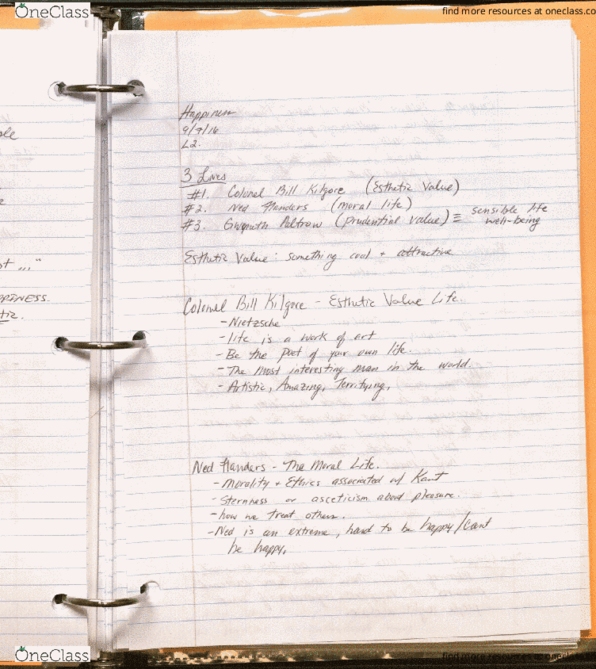 OneClass
find more resources at oneclass.co
ple
"
PPINESS.
Happiness
9/9/16
L2.
3 Lives
#1. Colonel Bill Kilgore (Esthetic Value)
#2. Ned Flanders (moral life)
#3. Gwyneth Paltrow (prudential value) ≡ sensible life
well-being
Esthetic Value: something cool + attractive
Colonel Bill Kilgore - Esthetic Value Life.
- Nietzsche
- life is a work of art
- Be the poet of your own life.
- The most interesting man in the world.
- Artistic, Amazing, Terrifying.
Ned Flanders - The Moral Life.
- Morality + Ethics associated w/ Kant
- Sternness or asceticism about pleasure.
- how we treat others.
- Ned is an extreme, hard to be happy/cant
be happy.
OneClass
find more resources at oneclass.co